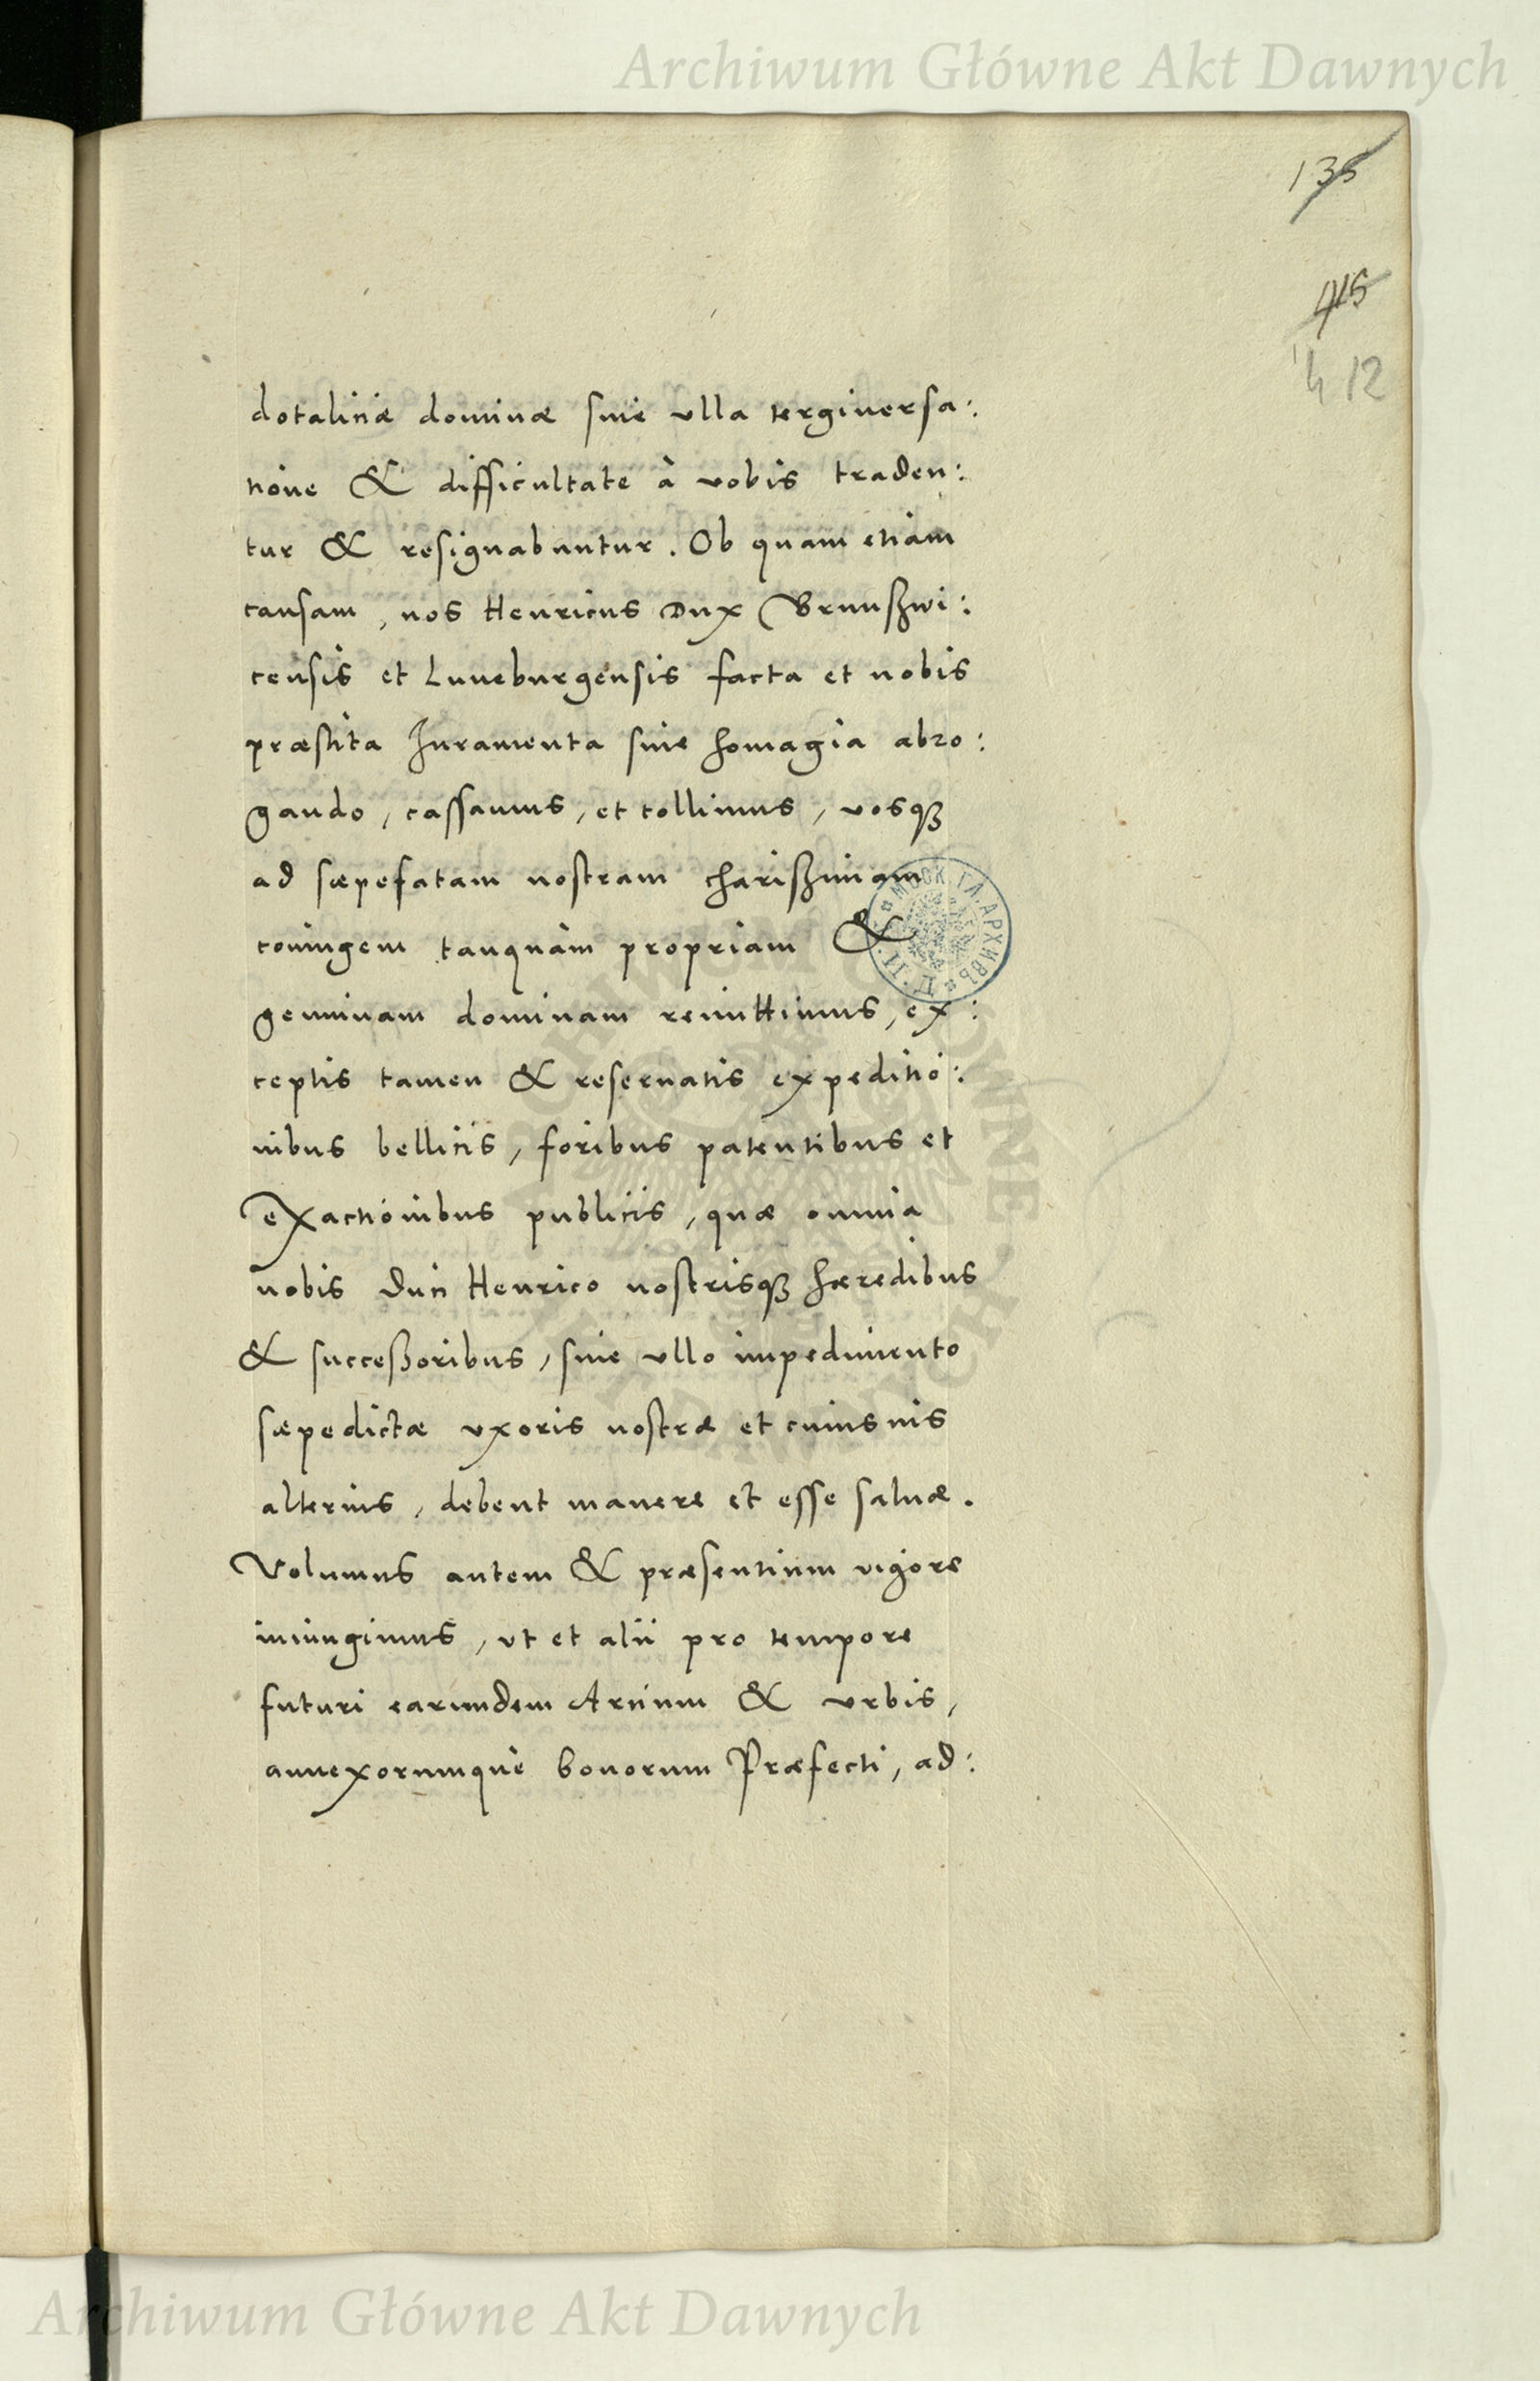 Archiwum Główne Akt Dawnych
135
415
412
dotaliciæ dominæ sine ulla tergiuersa:
tione & difficultate à vobis traden:
tur & resignabuntur. Ob quam etiam
causam, nos Henricus Dux Brunßwi:
censis et Luneburgensis facta et nobis
præstita Juramenta siue homagia abro:
gando, cassamus, et tollimus, vosq3
ad sæpefatam nostram charißimam
coniugem tanquàm propriam &
genuinam dominam remittimus, ex:
ceptis tamen & reseruatis expeditio:
nibus bellicis, foribus patentibus et
exactionibus publicis, quæ omnia
nobis Duci Henrico nostrisq3 hæredibus
& succeßoribus, sine ullo impedimento
sæpedictæ vxoris nostræ et cuiusuis
alterius, debent manere et esse saluæ.
Volumus autem & præsentium vigore
iniungimus, vt et alii pro tempore
futuri earundem Arcium & vrbis,
annexorumquè bonorum Præfecti, ad:
МОСК. ГЛ. АРХИВЪ
Archiwum Główne Akt Dawnych